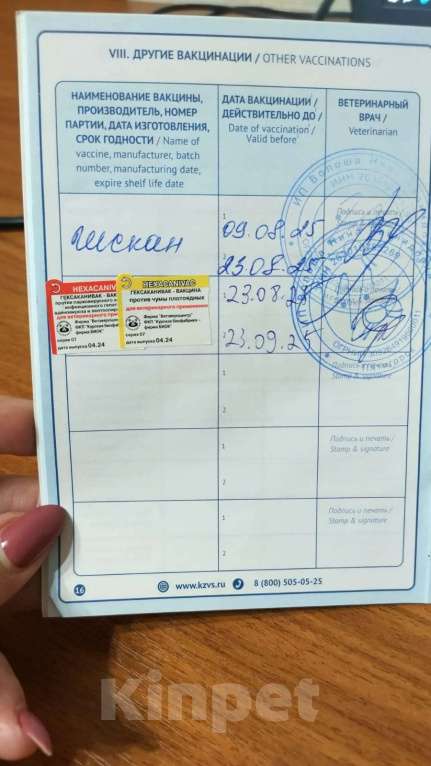 VIII. ДРУГИЕ ВАКЦИНАЦИИ / OTHER VACCINATIONS
НАИМЕНОВАНИЕ ВАКЦИНЫ,
ПРОИЗВОДИТЕЛЬ, НОМЕР
ПАРТИИ, ДАТА ИЗГОТОВЛЕНИЯ,
СРОК ГОДНОСТИ / Name of
vaccine, manufacturer, batch
number, manufacturing date,
expire shelf life date
ДАТА ВАКЦИНАЦИИ /
ДЕЙСТВИТЕЛЬНО ДО /
Date of vaccination /
Valid before
ВЕТЕРИНАРНЫЙ
ВРАЧ /
Veterinarian
Гискан
1
09.08.25
23.08.25
HEXACANIVAC
ГЕКСАКАНИВАК - ВАКЦ
HEXACANIVAC
ГЕКСАКАНИВАК - ВАКЦИНА
против чумы плотоядных
для ветеринарного применения
Фирма "Ветзвероцентр"
ФКП "Курская биофабрика -
фирма БИОК"
серия 07
дата выпуска 04.24
серия 07
дата выпуска 04.24
23.08.25
23.09.25
1
2
Stamp & signature
1
2
Подпись и печать /
Stamp & signature
1
2
Подпись и печать /
Stamp & signature
16
www.kzvs.ru
8 (800) 505-05-25
Kinpet